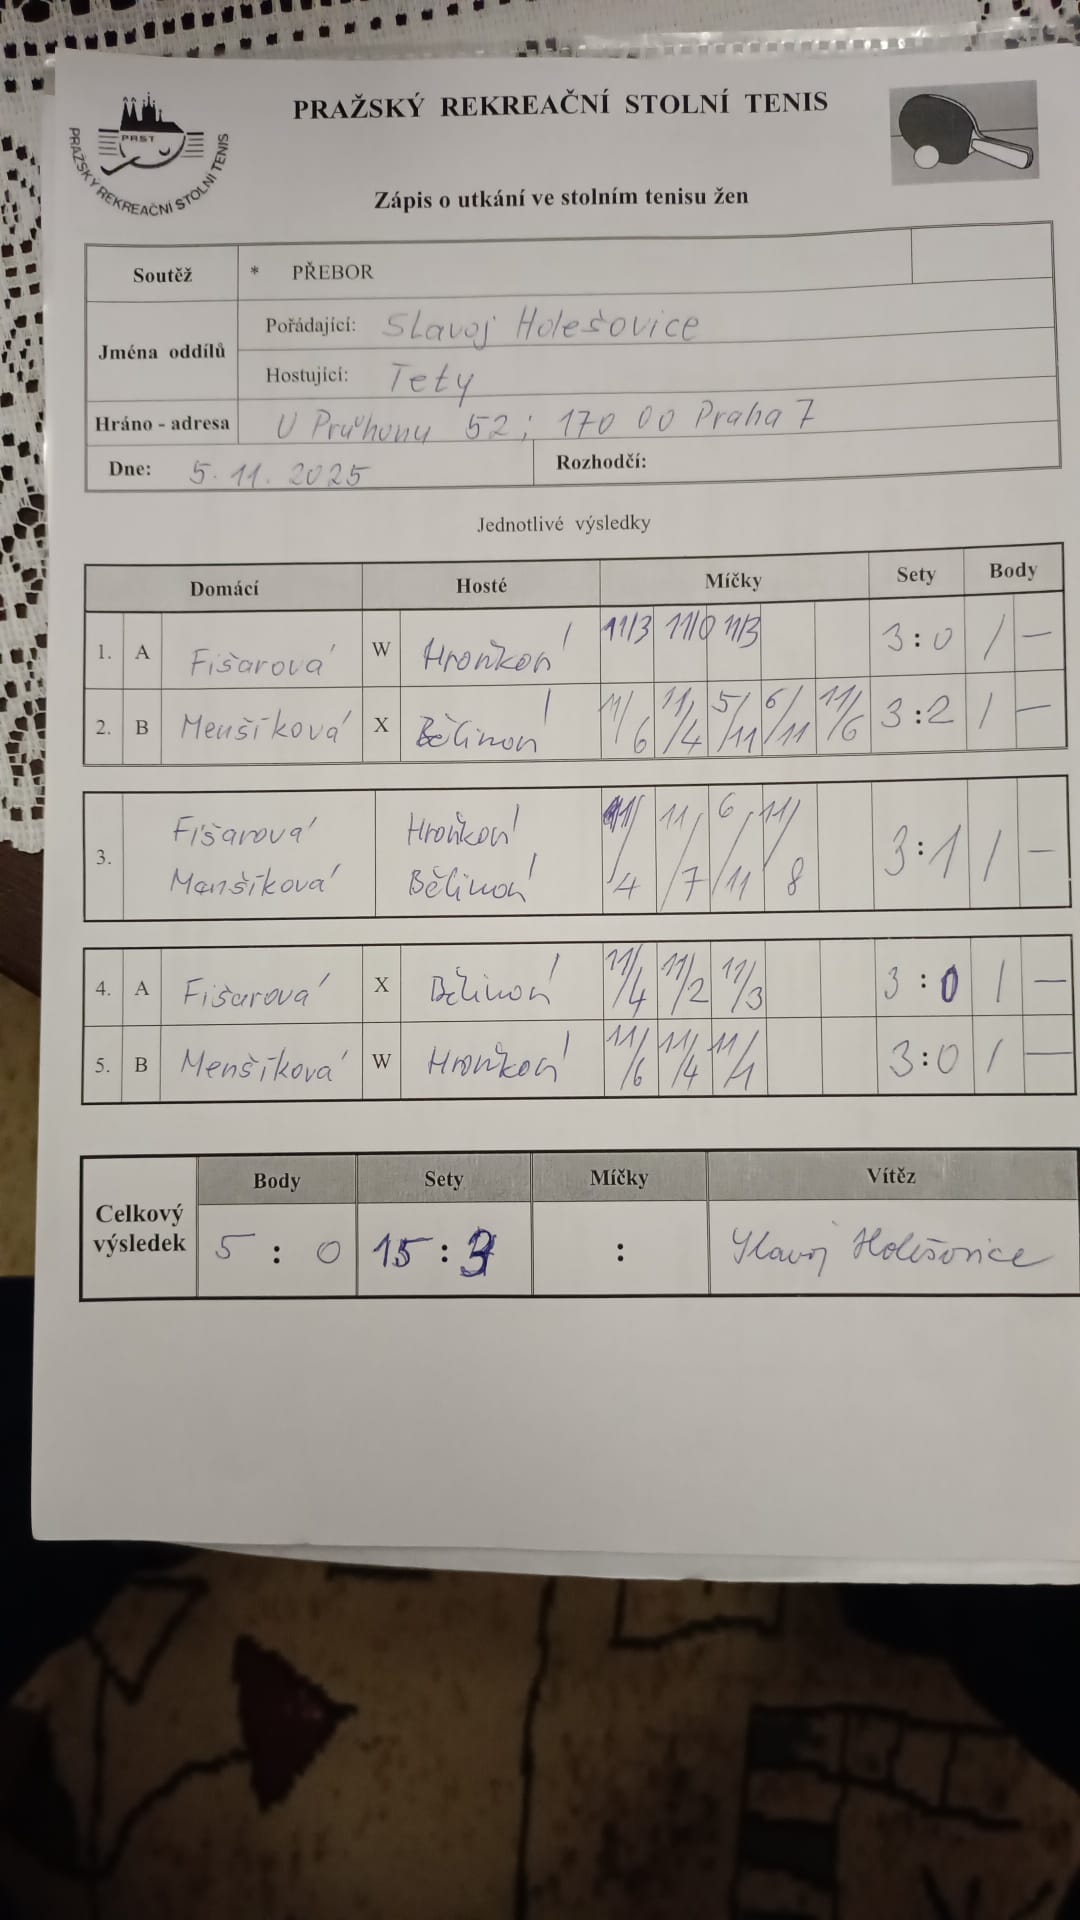 PRAŽSKÝ REKREAČNÍ STOLNÍ TENIS
PRST
PRAŽSKÝ REKREAČNÍ STOLNÍ TENIS
Zápis o utkání ve stolním tenisu žen
Soutěž * PŘEBOR
Jména oddílů
Pořádající: Slavoj Holešovice
Hostující: Tety
Hráno - adresa U Průhonu 52; 170 00 Praha 7
Dne: 5. 11. 2025 Rozhodčí:
Jednotlivé výsledky
Domácí Hosté Míčky Sety Body
1. A Fišarová W 11/3 11/0 11/3 3:0 / —
2. B Menšíková X 11/6 11/4 5/11 6/11 11/6 3:2 / —
3. Fišarová 11/4 11/7 6/11 11/8 3:1 / —
Menšíková
4. A Fišarová X 11/4 11/2 11/3 3:0 / —
5. B Menšíková W 11/6 11/4 11/1 3:0 / —
Body Sety Míčky Vítěz
Celkový výsledek 5 : 0 15 : 3 : Slavoj Holešovice